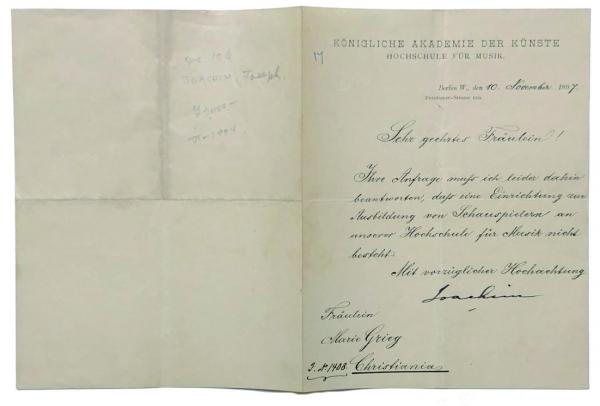 JOACHIM, Joseph.
KÖNIGLICHE AKADEMIE DER KÜNSTE
HOCHSCHULE FÜR MUSIK.
Berlin W., den 10. November 1897.
Potsdamer-Strasse 120.
Sehr geehrtes Fräulein!
Ihre Anfrage muß ich leider dahin
beantworten, daß eine Einrichtung zur
Ausbildung von Schauspielern an
unserer Hochschule für Musik nicht
besteht.
Mit vorzüglicher Hochachtung
Joachim
Fräulein
Marie Grieg
J. N. 1408. Christiania